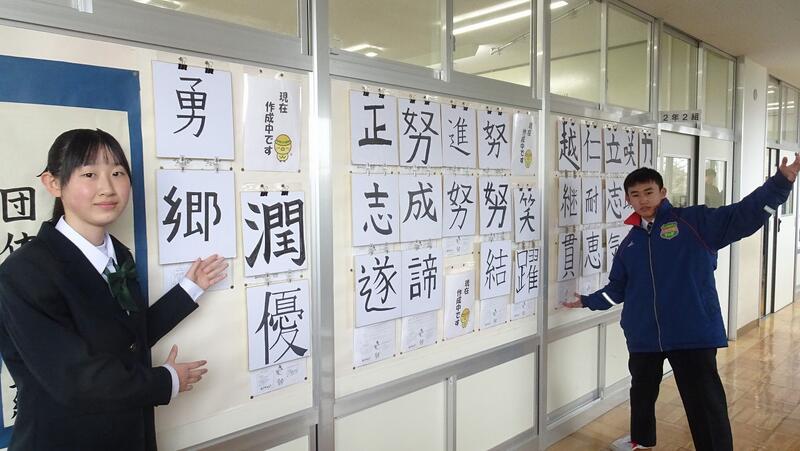 団体
勇
現在
作成中です
郷
潤
優
正
努
進
努
志
成
努
努
笑
遂
諦
現在
作成中です
結
躍
越
仁
立
咲
力
継
耐
志
貫
恵
気
2年2組